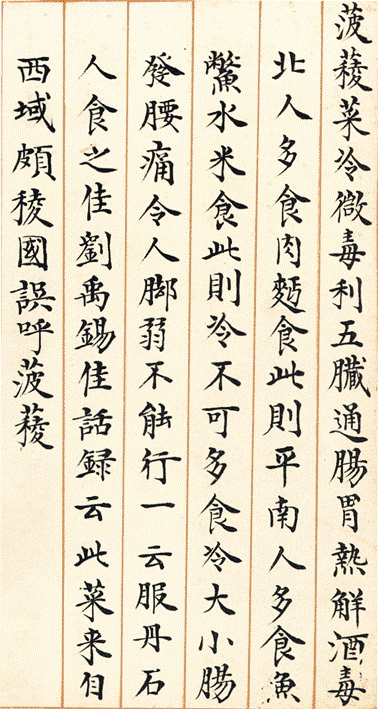 菠薐菜冷微毒利五臟通腸胃熱解酒毒
北人多食肉麪食此則平南人多食魚
鱉水米食此則冷不可多食冷大小腸
發腰痛令人脚弱不能行一云服丹石
人食之佳劉禹錫佳話録云此菜来自
西域頗稜國誤呼菠薐